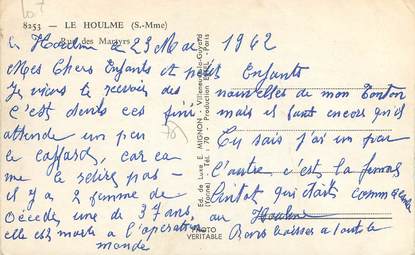 107
8253 — LE HOULME (S.-Mme)
Rue des Martyrs
Le Houlme le 23 Mai 1962
Mes Chers Enfants et petit Enfants
Je viens de recevoir des
nouvelles de mon Tonton
c'est dents ces fini
mais il faut encore qu'il
attende un peu
76
Tu sais j'ai un peu
le caffard, car ca
me le retire pas —
L'autre c'est la femme
il y a 2 femme de
Pintot qui était comme
Décédés une de 37 ans
au Houlme
elle est morte a l'opération
Bons baisses a tout le
monde
Ed. de Luxe E. MIGNON - Villeneuve-la-Guyard
(Yonne) Tél. : 70 - Production - Paris
PHOTO
VERITABLE